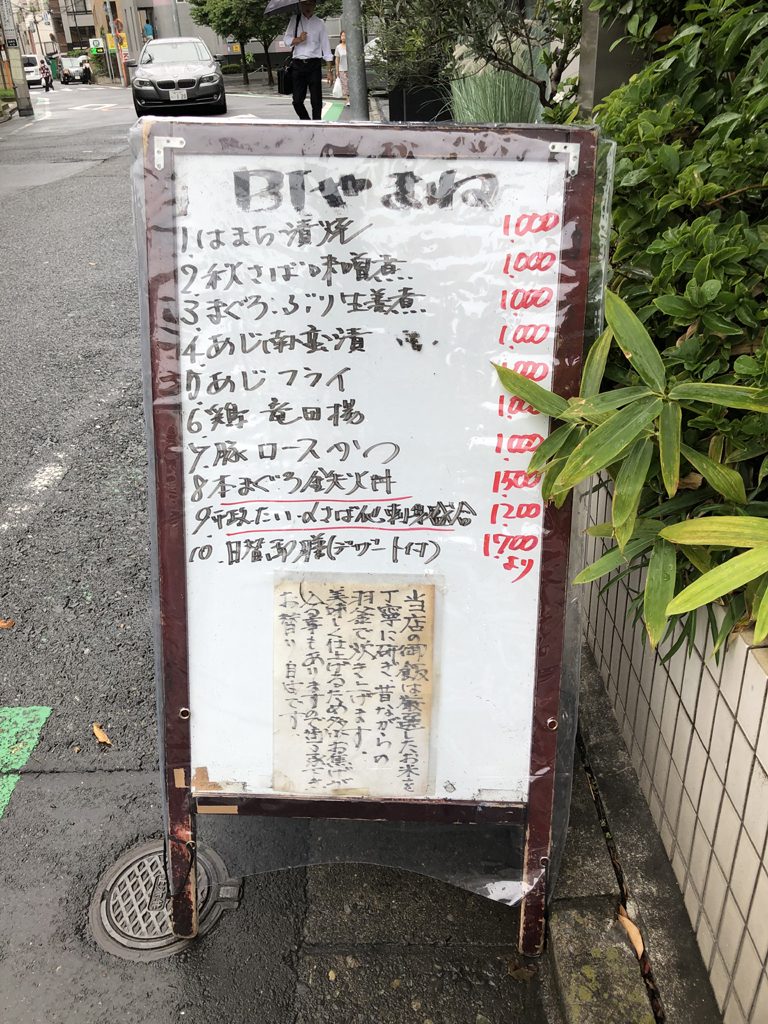 B1やまね
1.はまち漬焼 1,000
2.秋さば味噌煮 1,000
3.まぐろ.ぶり生姜煮 1,000
4.あじ南蛮漬 1,000
5.あじフライ 1,000
6.鶏竜田揚 1,000
7.豚ロースかつ 1,000
8.本まぐろ鉄火丼 1,500
9.たい.〆さば他刺身盛合 1,200
10.日替御膳(デザート付) 1,700より
当店の御飯は厳選したお米を
丁寧に研ぎ、昔ながらの
羽釜で炊き上げます。
美味しく仕上げるためお焦げが
入る事もあります
お替り自由です。